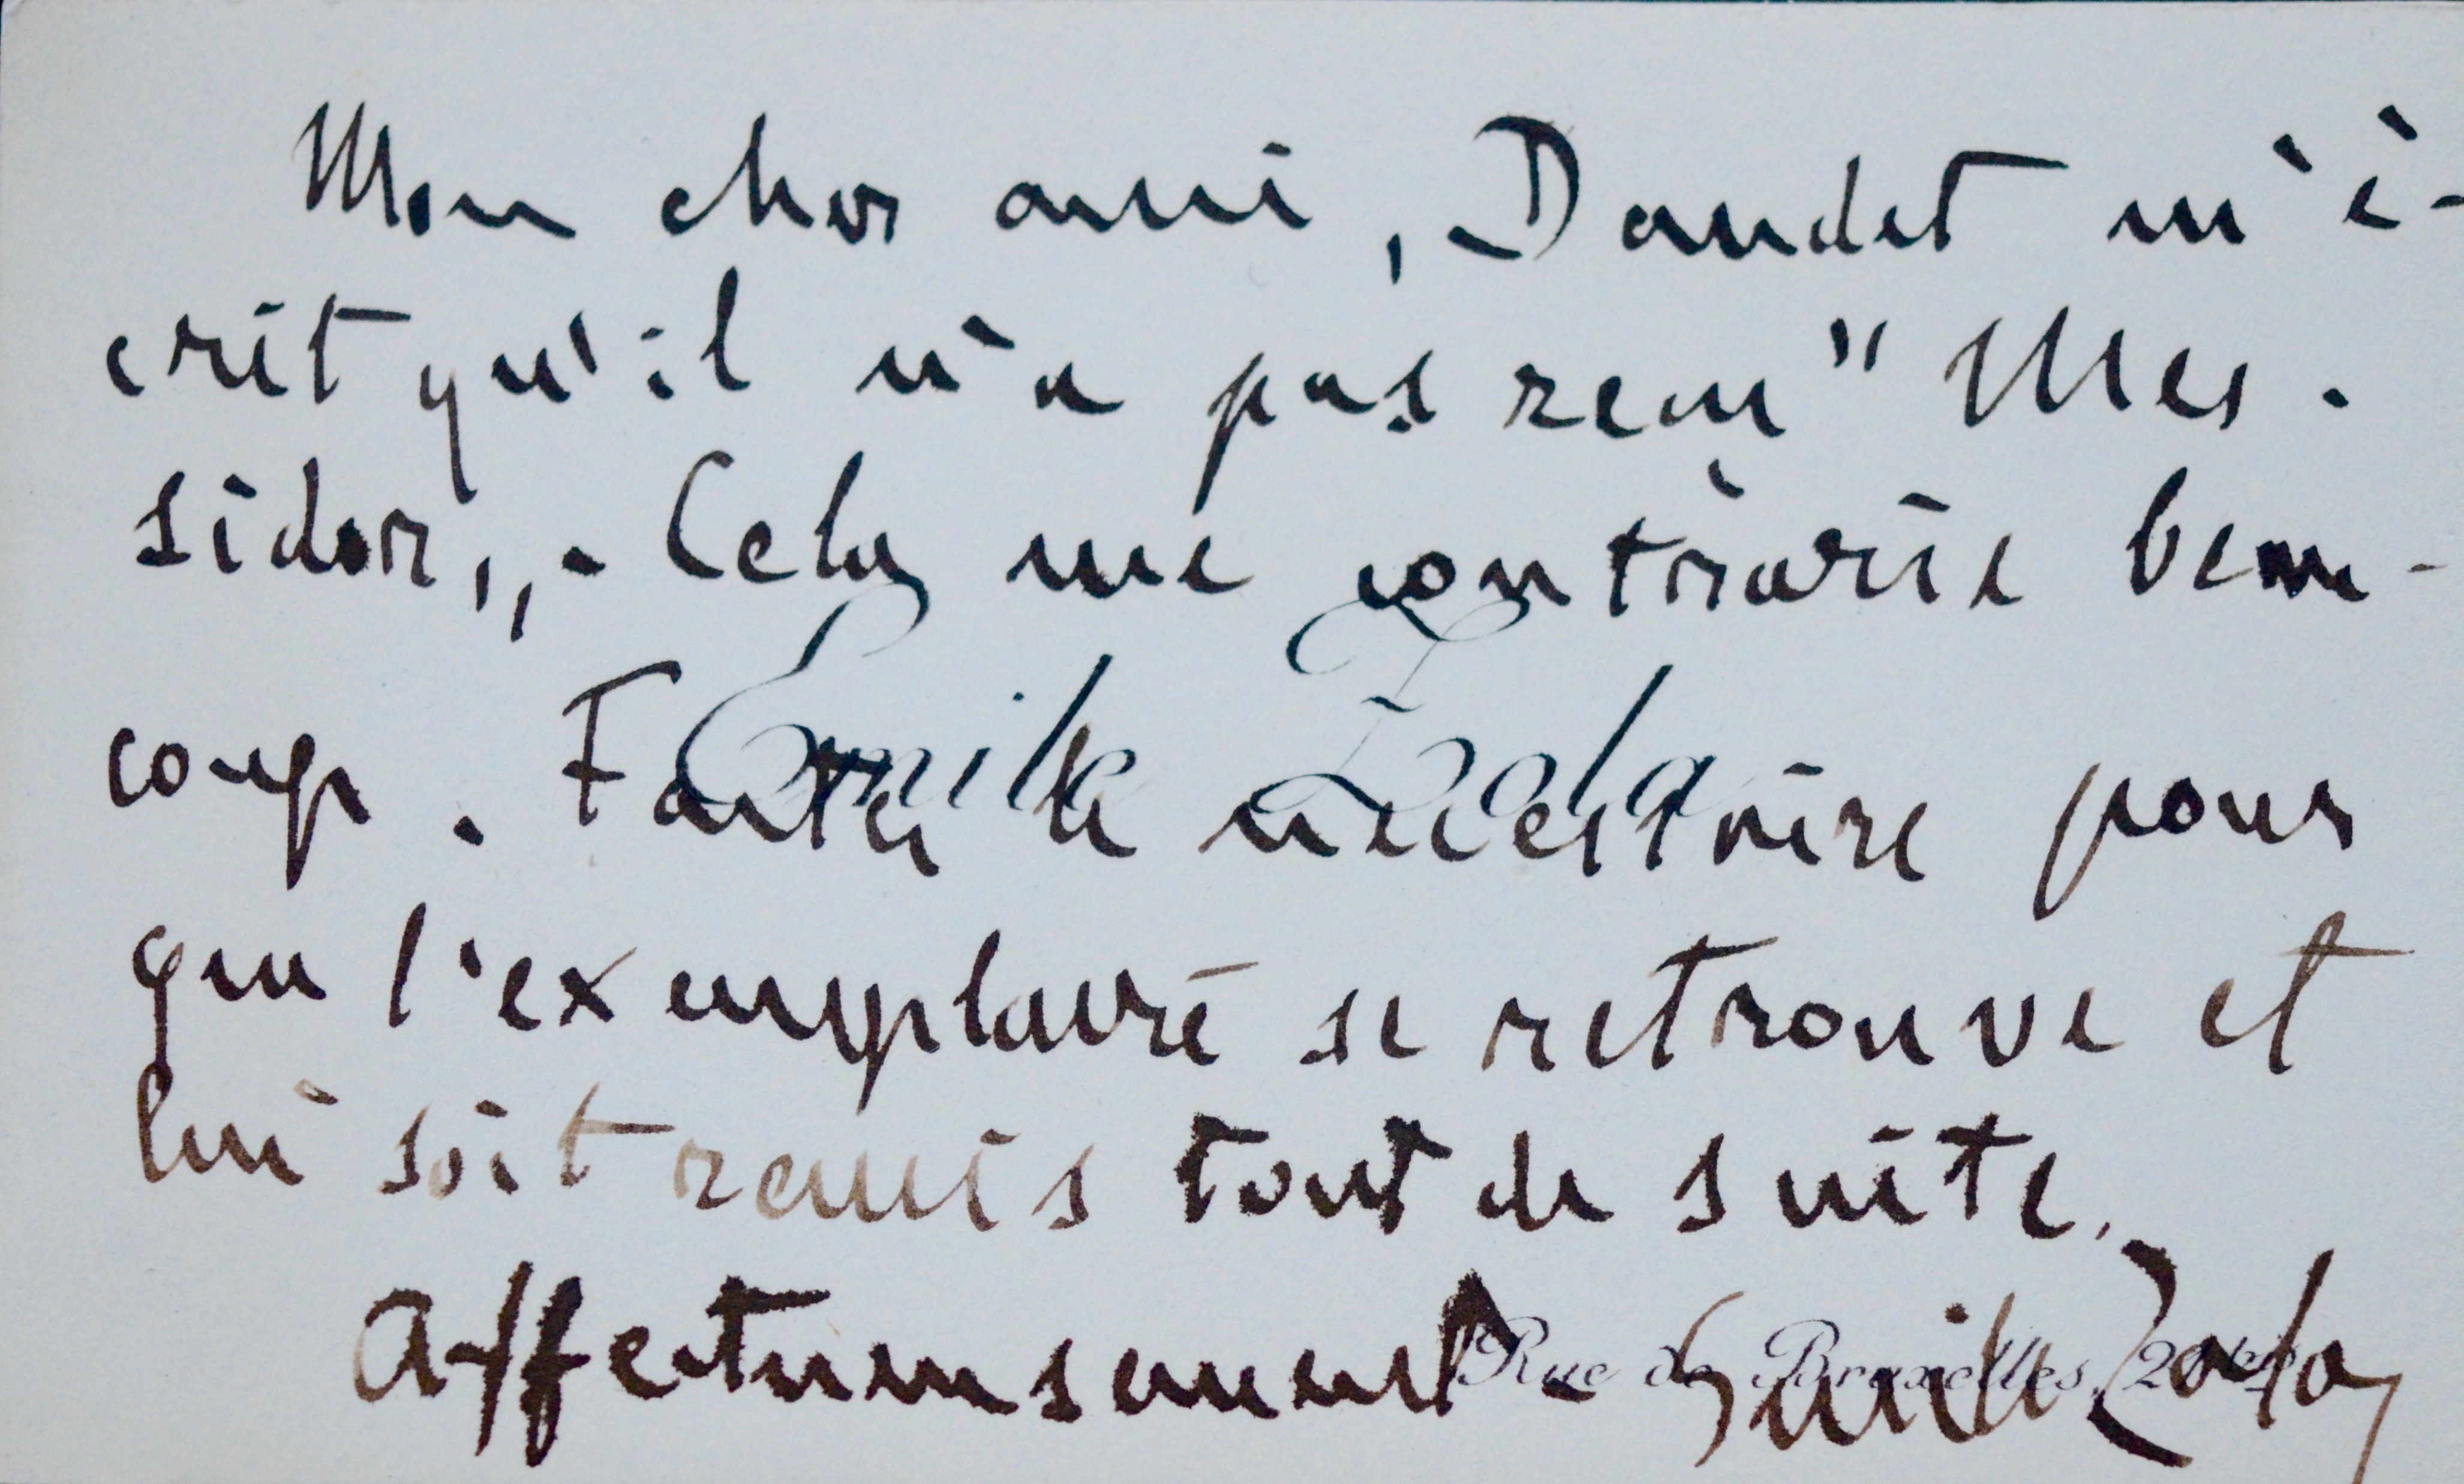 Mon cher ami, - Daudet m'é-
crit qu'il n'a pas reçu "Mes-
sidor„. Cela me contrarie beau-
Emile Zola
coup. Faites le nécessaire pour
que l'exemplaire se retrouve et
lui soit remis tout de suite.
Affectueusement - Emile Zola
Rue de Bruxelles, 21 bis